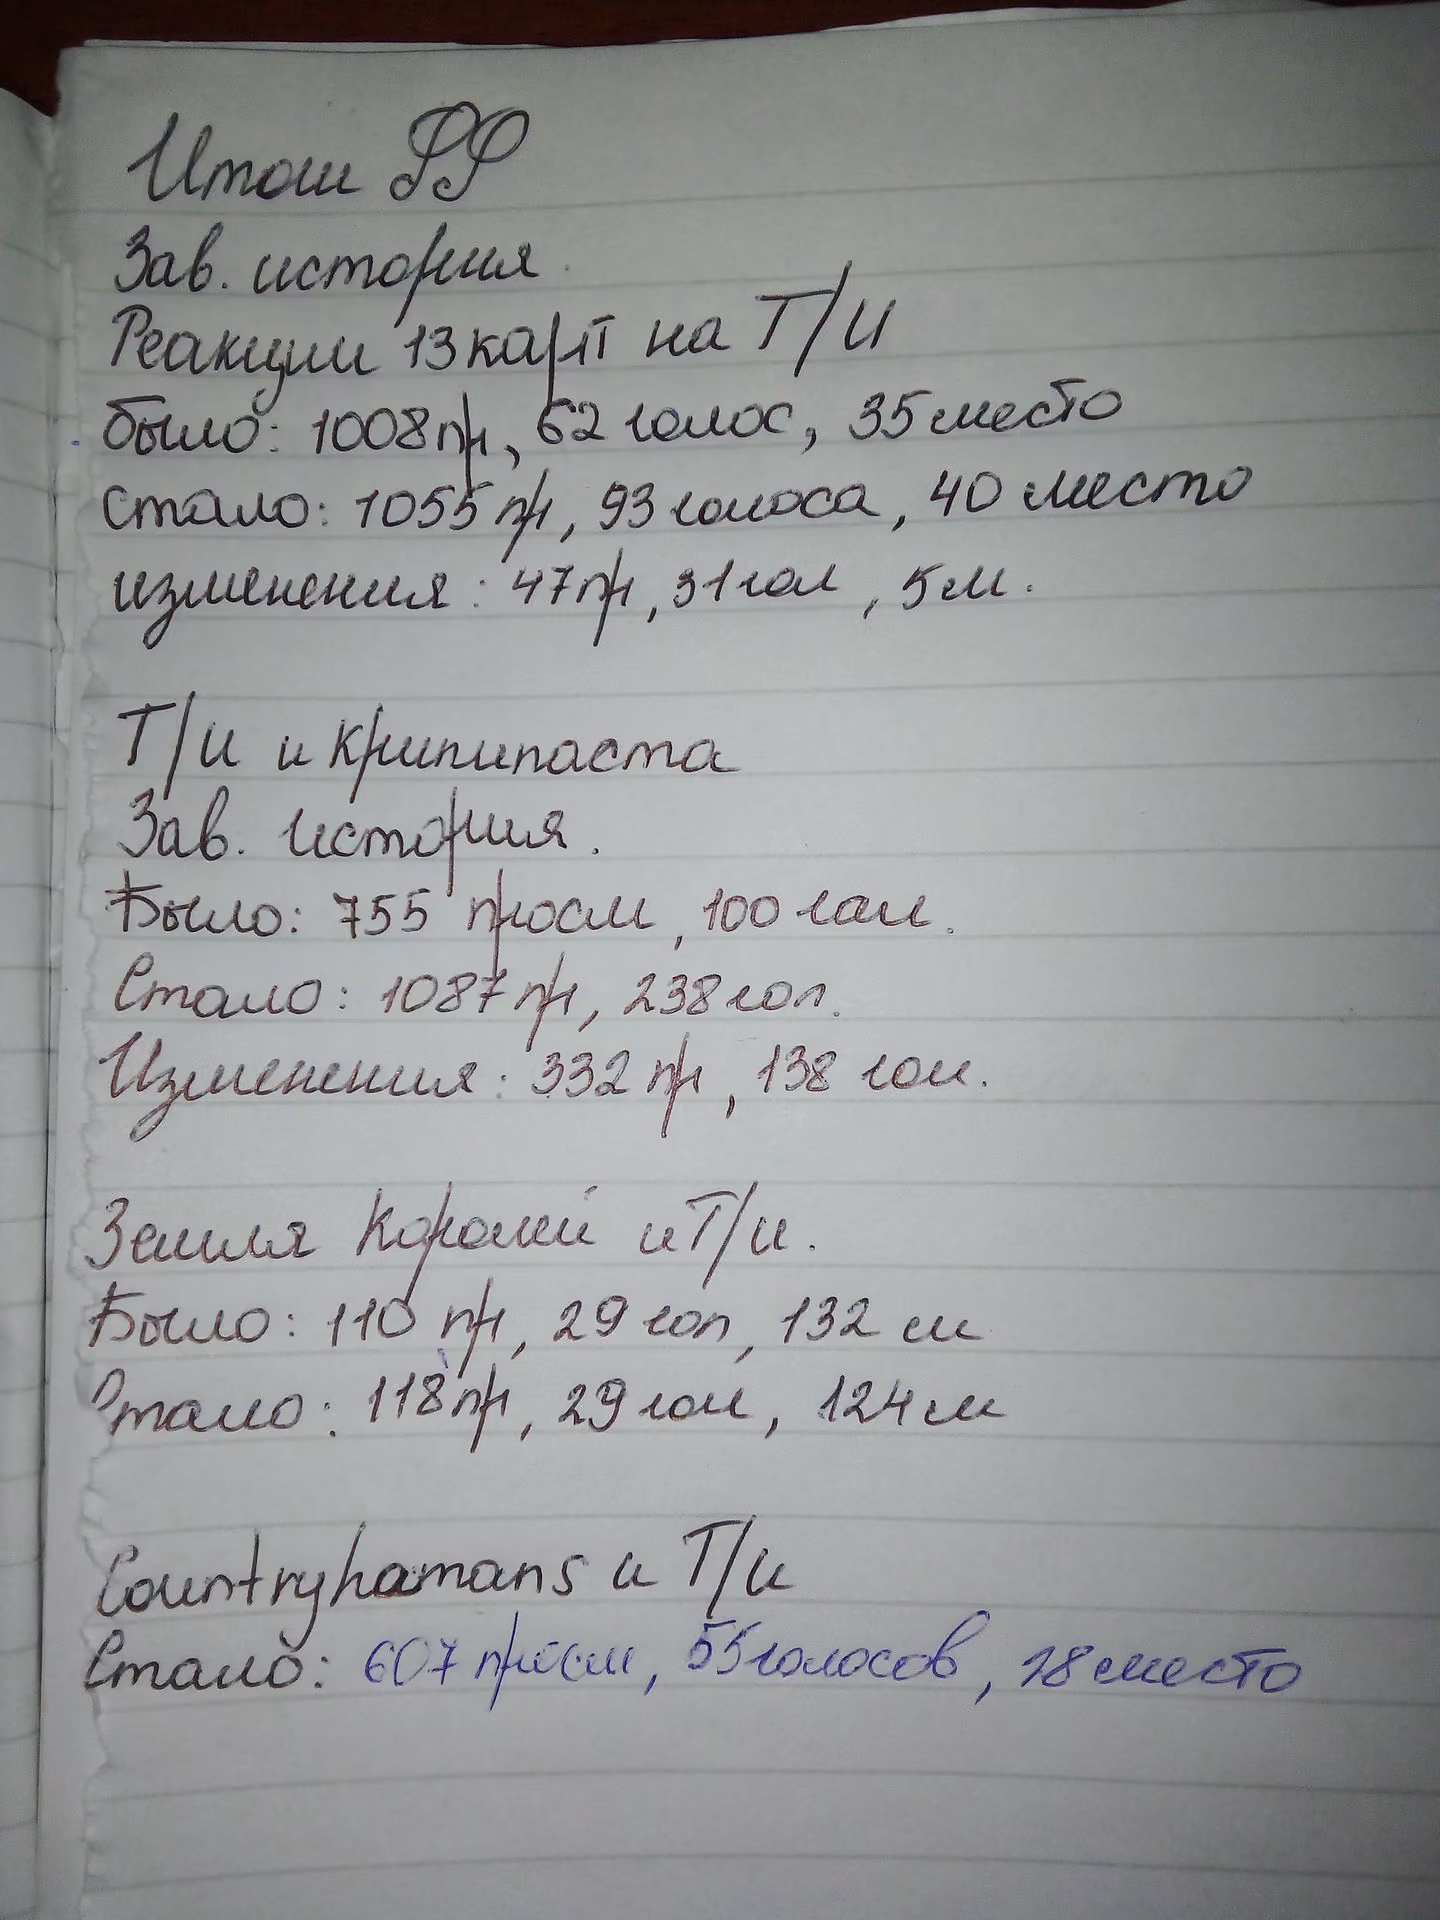 Итоги ФФ
Зав. история
Реакции 13 карт на Т/И
было: 1008 пр, 62 голос, 35 место
стало: 1055 пр, 93 голоса, 40 место
изменения: 47 пр, 31 гол, 5 м.
Т/и и крипипаста
Зав. история.
Было: 755 просм, 100 гол.
Стало: 1087 пр, 238 гол.
Изменения: 332 пр, 138 гол.
Земля Королей и Т/и.
Было: 110 пр, 29 гол, 132 м
Стало: 118 пр, 29 гол, 124 м
Countryhamans и Т/и
Стало: 607 просм, 55 голосов, 28 место